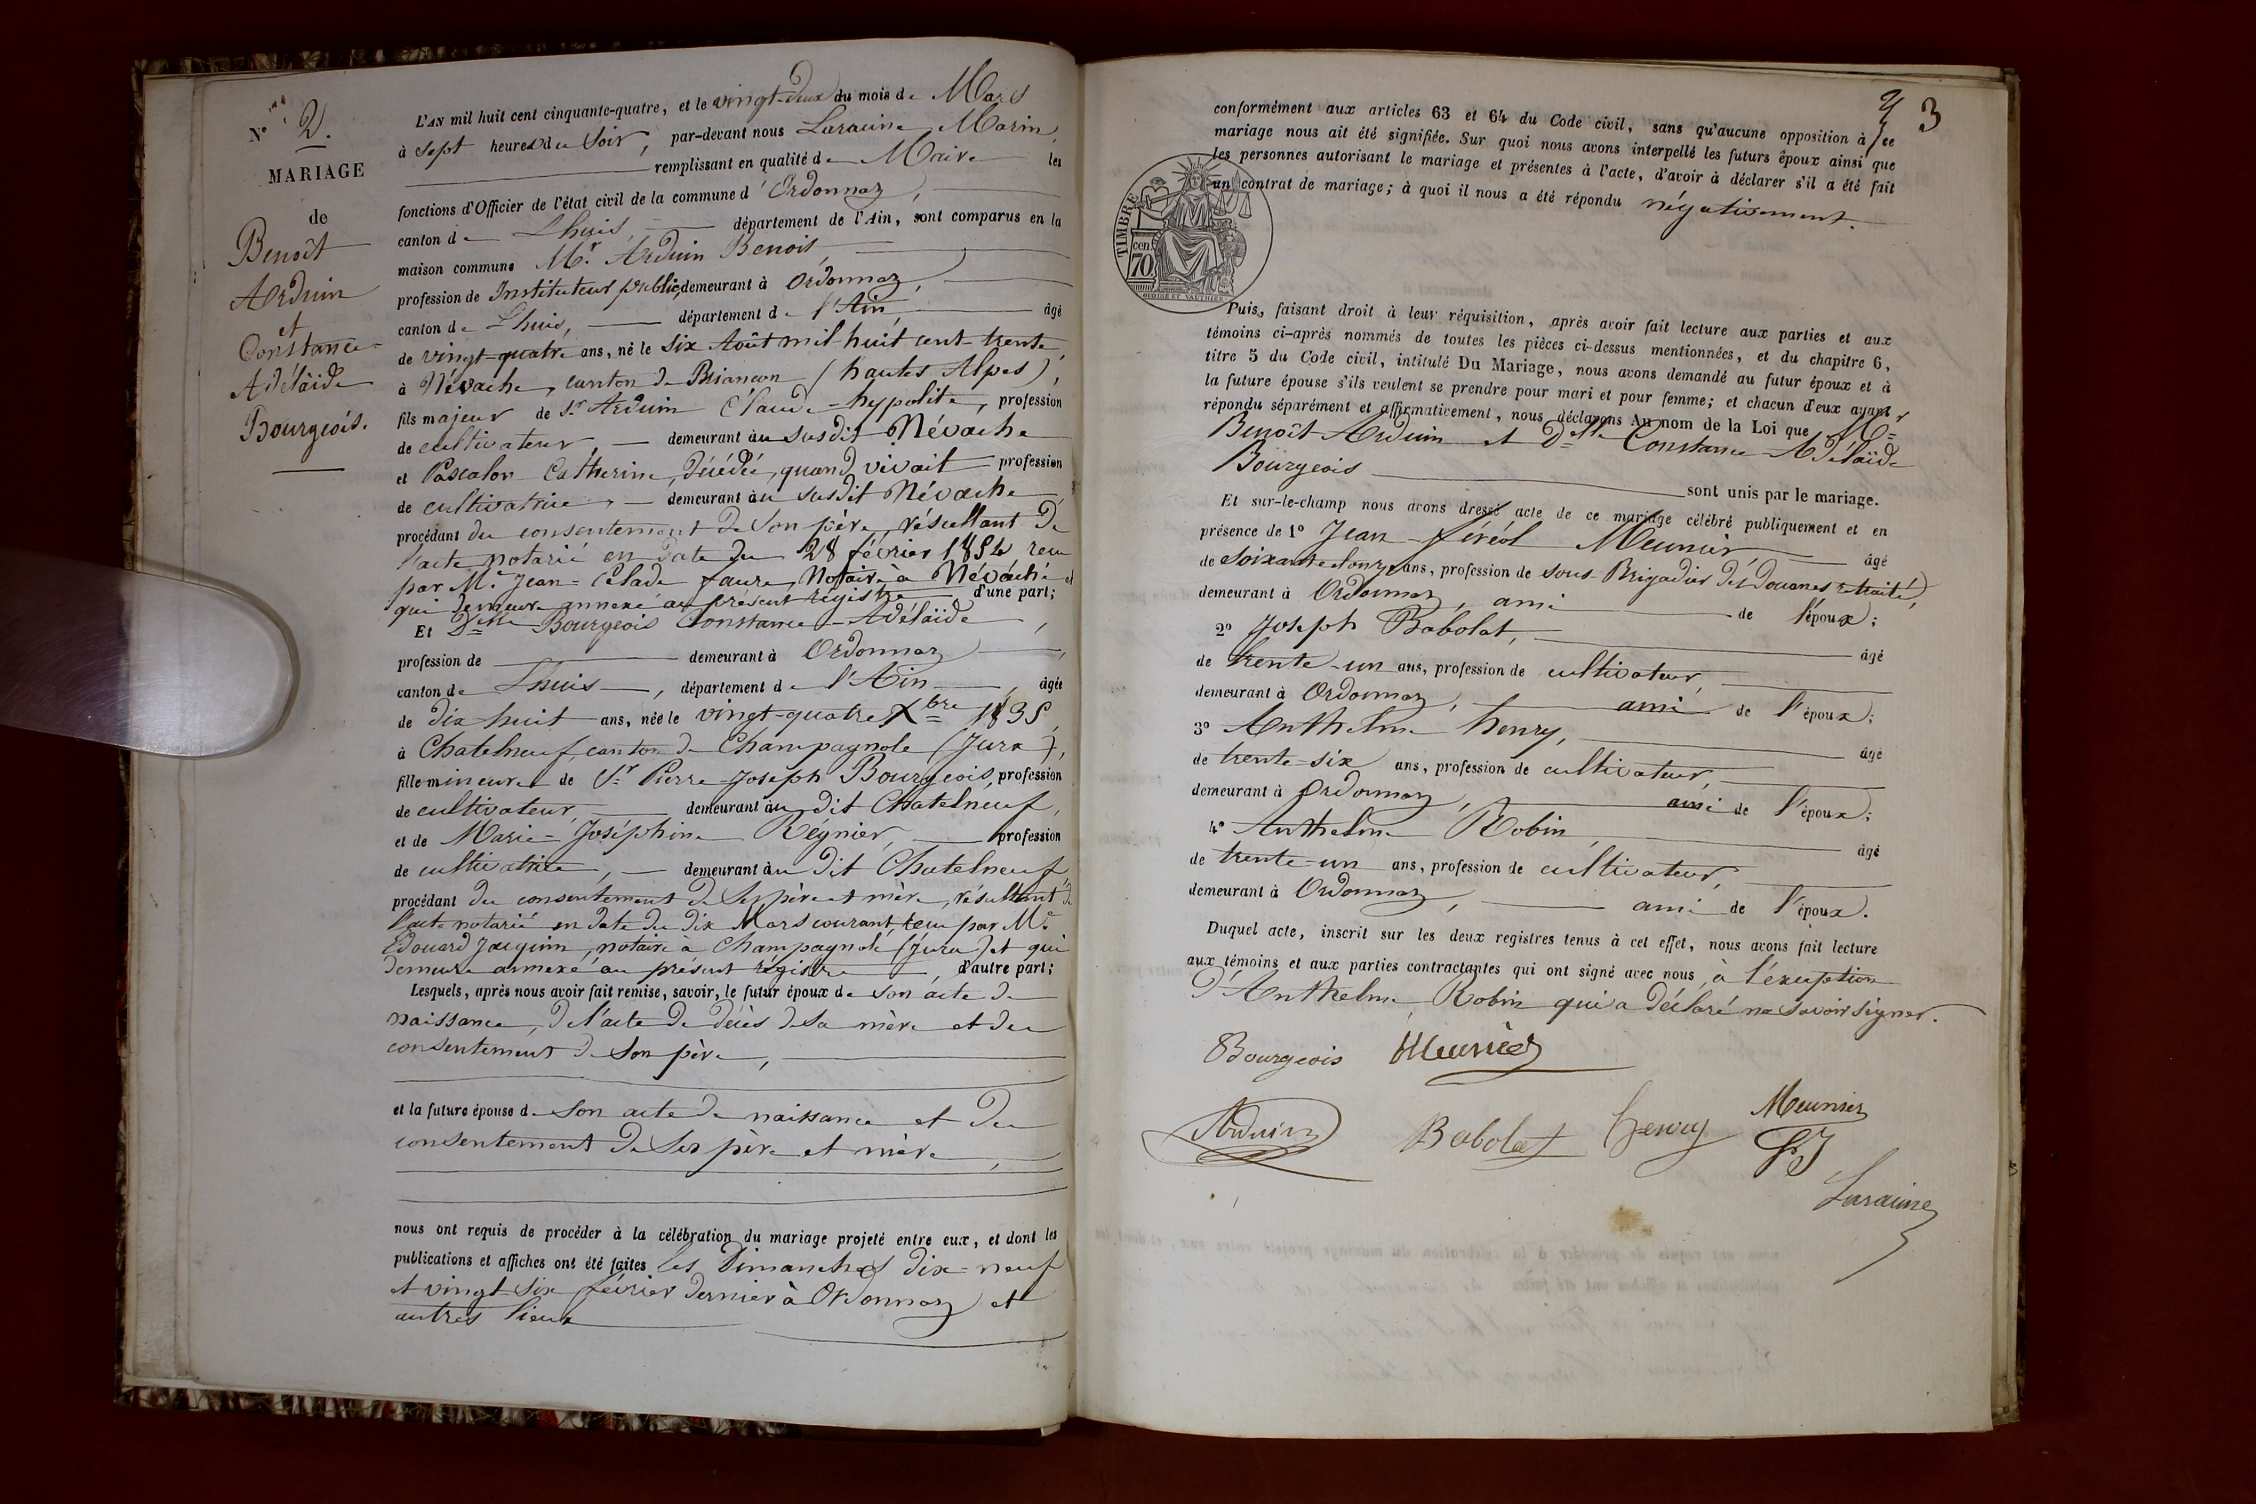 N° 2.
MARIAGE
de
Benoît
Arduin
et
Constance-
Adélaïde
Bourgeois.
L'AN mil huit cent cinquante-quatre, et le vingt-deux du mois de Mars
à sept heures du Soir, par-devant nous Laraime Marin,
remplissant en qualité de Maire les
fonctions d'Officier de l'état civil de la commune d'Ordonnaz,
canton de Lhuis, département de l'Ain, sont comparus en la
maison commune Mr. Arduin Benoit,
profession de Instituteur public, demeurant à Ordonnaz,
canton de Lhuis, département de l'Ain, âgé
de vingt-quatre ans, né le six Août mil huit cent trente,
à Névache, canton de Briançon (hautes Alpes),
fils majeur de Sr Arduin Claude-hypolite, profession
de cultivateur, demeurant au susdit Névache
et Pascalon Catherine, Décédée, quand vivait profession
de cultivatrice, demeurant au susdit Névache,
procédant du consentement de Son père, résultant de
l'acte notarié en date du 28 février 1854 reçu
par Me Jean-Celade faure, Notaire à Névache et
qui demeure annexé au présent régistre d'une part;
Et Delle Bourgeois Constance-Adélaïde,
profession de demeurant à Ordonnaz,
canton de Lhuis, département de l'Ain, âgée
de dix huit ans, née le vingt-quatre Xbre 1835,
à Chatelneuf, canton de Champagnole (Jura),
fille mineure de Sr Pierre-Joseph Bourgeois, profession
de cultivateur, demeurant au dit Chatelneuf,
et de Marie-Joséphine Reynier, profession
de cultivatrice, demeurant au dit Chatelneuf,
procédant du consentement de Ses père et mère, résultant de
l'acte notarié en date du dix Mars courant, reçu par Me
Edouard Jacquin, notaire à Champagnole (Jura) et qui
demeure annexé au présent régistre, d'autre part;
Lesquels, après nous avoir fait remise, savoir, le futur époux de son acte de
naissance, de l'acte de décès de Sa mère et du
consentement de Son père,
et la future épouse de Son acte de naissance et du
consentement de Ses père et mère,
nous ont requis de procéder à la célébration du mariage projeté entre eux, et dont les
publications et affiches ont été faites les Dimanches dix-neuf
et vingt-six février dernier à Ordonnaz et
autres lieux
3
conformément aux articles 63 et 64 du Code civil, sans qu'aucune opposition à ce
mariage nous ait été signifiée. Sur quoi nous avons interpellé les futurs époux ainsi que
les personnes autorisant le mariage et présentes à l'acte, d'avoir à déclarer s'il a été fait
un contrat de mariage; à quoi il nous a été répondu négativement.
TIMBRE
70 cen
Puis, faisant droit à leur réquisition, après avoir fait lecture aux parties et aux
témoins ci-après nommés de toutes les pièces ci-dessus mentionnées, et du chapitre 6,
titre 5 du Code civil, intitulé Du Mariage, nous avons demandé au futur époux et à
la future épouse s'ils veulent se prendre pour mari et pour femme; et chacun d'eux ayant
répondu séparément et affirmativement, nous déclarons Au nom de la Loi que Mr
Benoît Arduin et Delle Constance-Adélaïde
Bourgeois sont unis par le mariage.
Et sur-le-champ nous avons dressé acte de ce mariage célébré publiquement et en
présence de 1° Jean-féréol Meunier, âgé
de soixante-onze ans, profession de sous-Brigadier des Douanes retraité,
demeurant à Ordonnaz, ami de l'époux;
2° Joseph Babolat, âgé
de trente-un ans, profession de cultivateur,
demeurant à Ordonnaz, ami de l'époux;
3° Anthelme henry, âgé
de trente-six ans, profession de cultivateur,
demeurant à Ordonnaz, ami de l'époux;
4° Anthelme Robin, âgé
de trente-un ans, profession de cultivateur,
demeurant à Ordonnaz, ami de l'époux.
Duquel acte, inscrit sur les deux registres tenus à cet effet, nous avons fait lecture
aux témoins et aux parties contractantes qui ont signé avec nous, à l'exception
d'Anthelme Robin qui a déclaré ne savoir signer.
Bourgeois Meunier
Arduin Babolat henry Meunier
Laraime